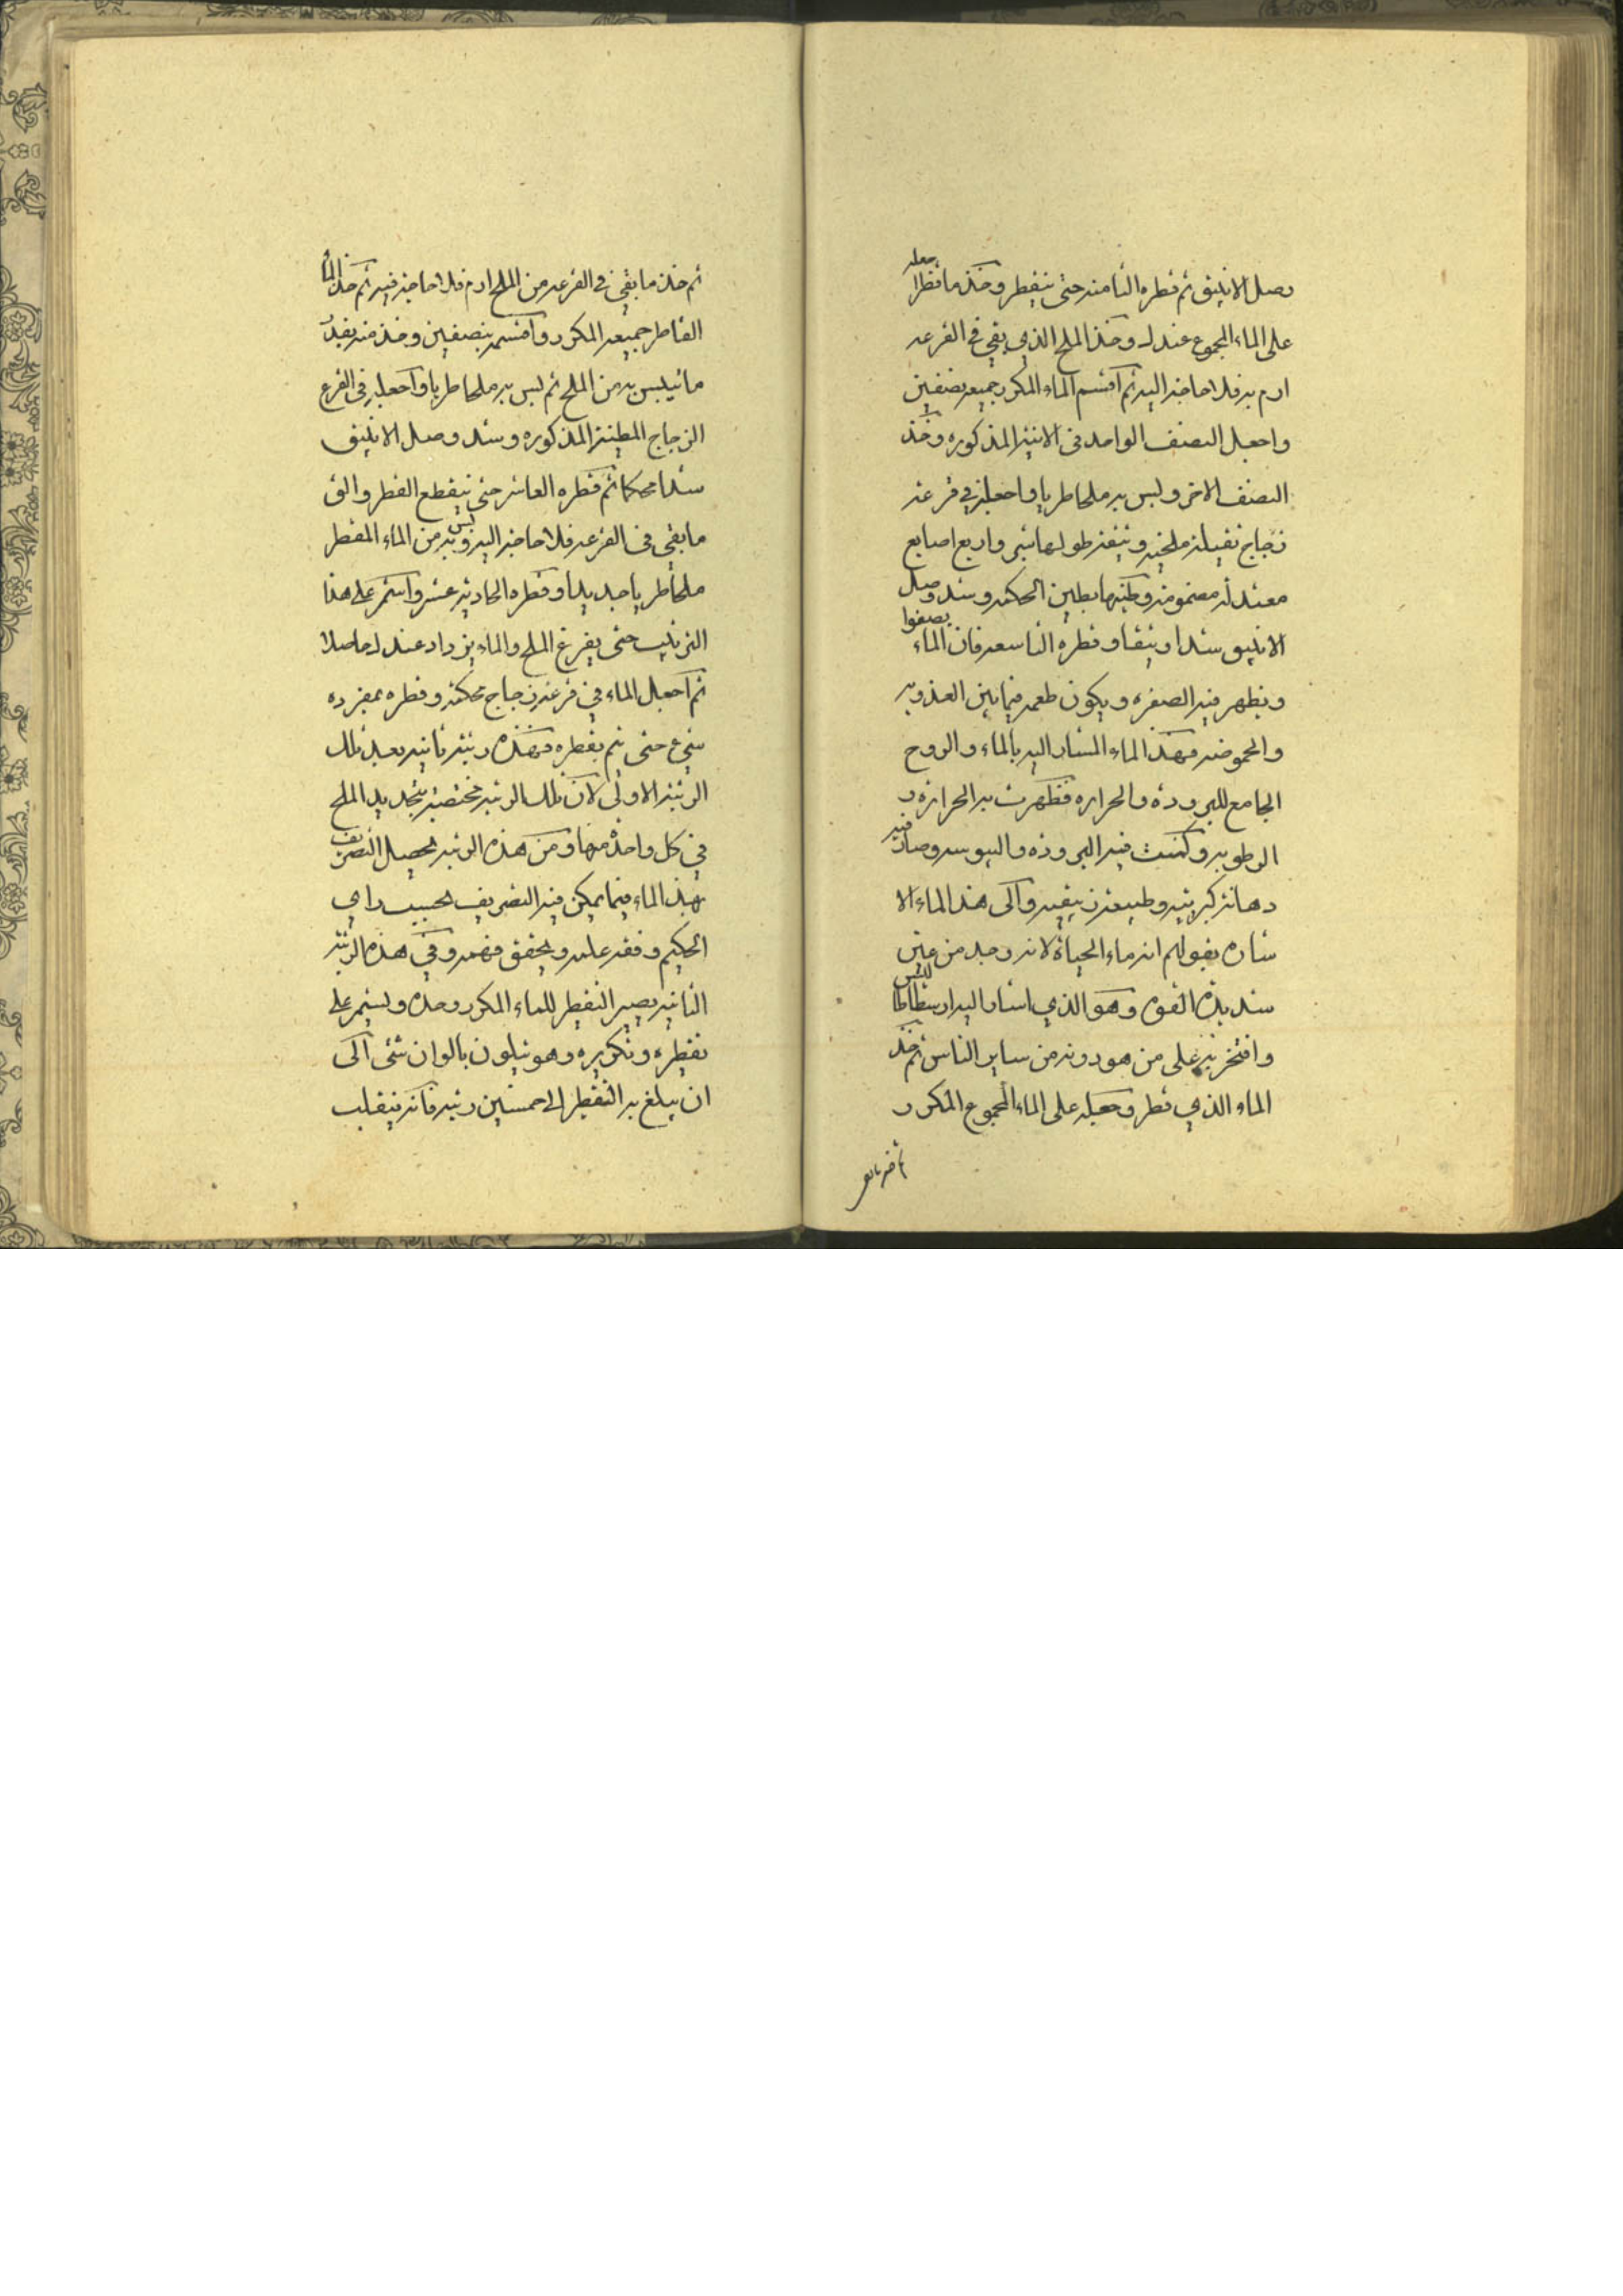 وصل الانبيق ثم قطره الثامنه حتى ينقطر وخذ ما قطر اجعله
على الماء المجموع عندك وخذ الملح الذي بقي في القرعه
ارم به فلا حاجه اليه ثم اقسم الماء المكرر جميعه نصفين
واجعل النصف الواحد في الانيه المذكوره وخذ
النصف الاخر ولبس به ملحا طريا واجعله في قرعه
زجاج ثقيله ملحيه وثيقه طولها شبر واربع اصابع
معتدله مضمومه وطينها بطين الحكمه وسد وصل
الانبيق سدا وثيقا وقطره التاسعه فان الماء يصفوا
ويظهر فيه الصفره ويكون طعمه فيما بين العذوبه
والحموضه فهذا الماء المشار اليه بالماء والروح
الجامع للبروده والحراره فظهرت به الحراره و
الرطوبه وكنت فيه البروده واليبوسه وصار فيه
دهانه كبريتيه وطبيعه زيبقيه والى هذا الماء الا
شاره بقولهم انه ماء الحياة لانه وجد من عين
شديدة القوه وهو الذي اشار اليه ارسطاطاليس
وافتخر به على من هو دونه من ساير الناس ثم خذ
الماء الذي قطر وجعله على الماء المجموع المكرر
ثم خذ ما بقي
ثم خذ ما بقي في القرعه من الملح ارم فلا حاجه فيه ثم خذ الماء
القاطر جميعه المكرر واقسمه بنصفين وخذ منه بقدر
ما تيلبس به من الملح ثم لبس به ملحا طريا واجعله في القرع
الزجاج المطينه المذكوره وسد وصل الانبيق
سدا محكما ثم قطره العاشر حتى ينقطع القطر والق
ما بقي في القرعه فلا حاجه اليه ولبس به من الماء المقطر
ملحا طريا جديدا وقطره الحاديه عشر واستمر على هذا
الترتيب حتى يفرغ الملح والماء يزداد عندك حاصلا
ثم اجعل الماء في قرعة زجاج محكمه وقطره بمفرده
حتى تم بقطره فهذه رتبه ثانيه بعد تلك
الرتبه الاولى لان تلك الرتبه مختصه بتجديد الملح
في كل واحدة منها ومن هذه الرتبه يحصل التصريف
بهذا الماء فيما يمكن فيه التصريف بحسب راي
الحكيم وفقه علمه ويحقق فهمه وفي هذه الرتبه
الثانيه يصير التقطير للماء المكرر وحده ويستمر على
تقطيره وتكريره وهو يتلون بالوان شتى الى
ان يبلغ به التقطير الى خمسين رتبه فانه ينقلب